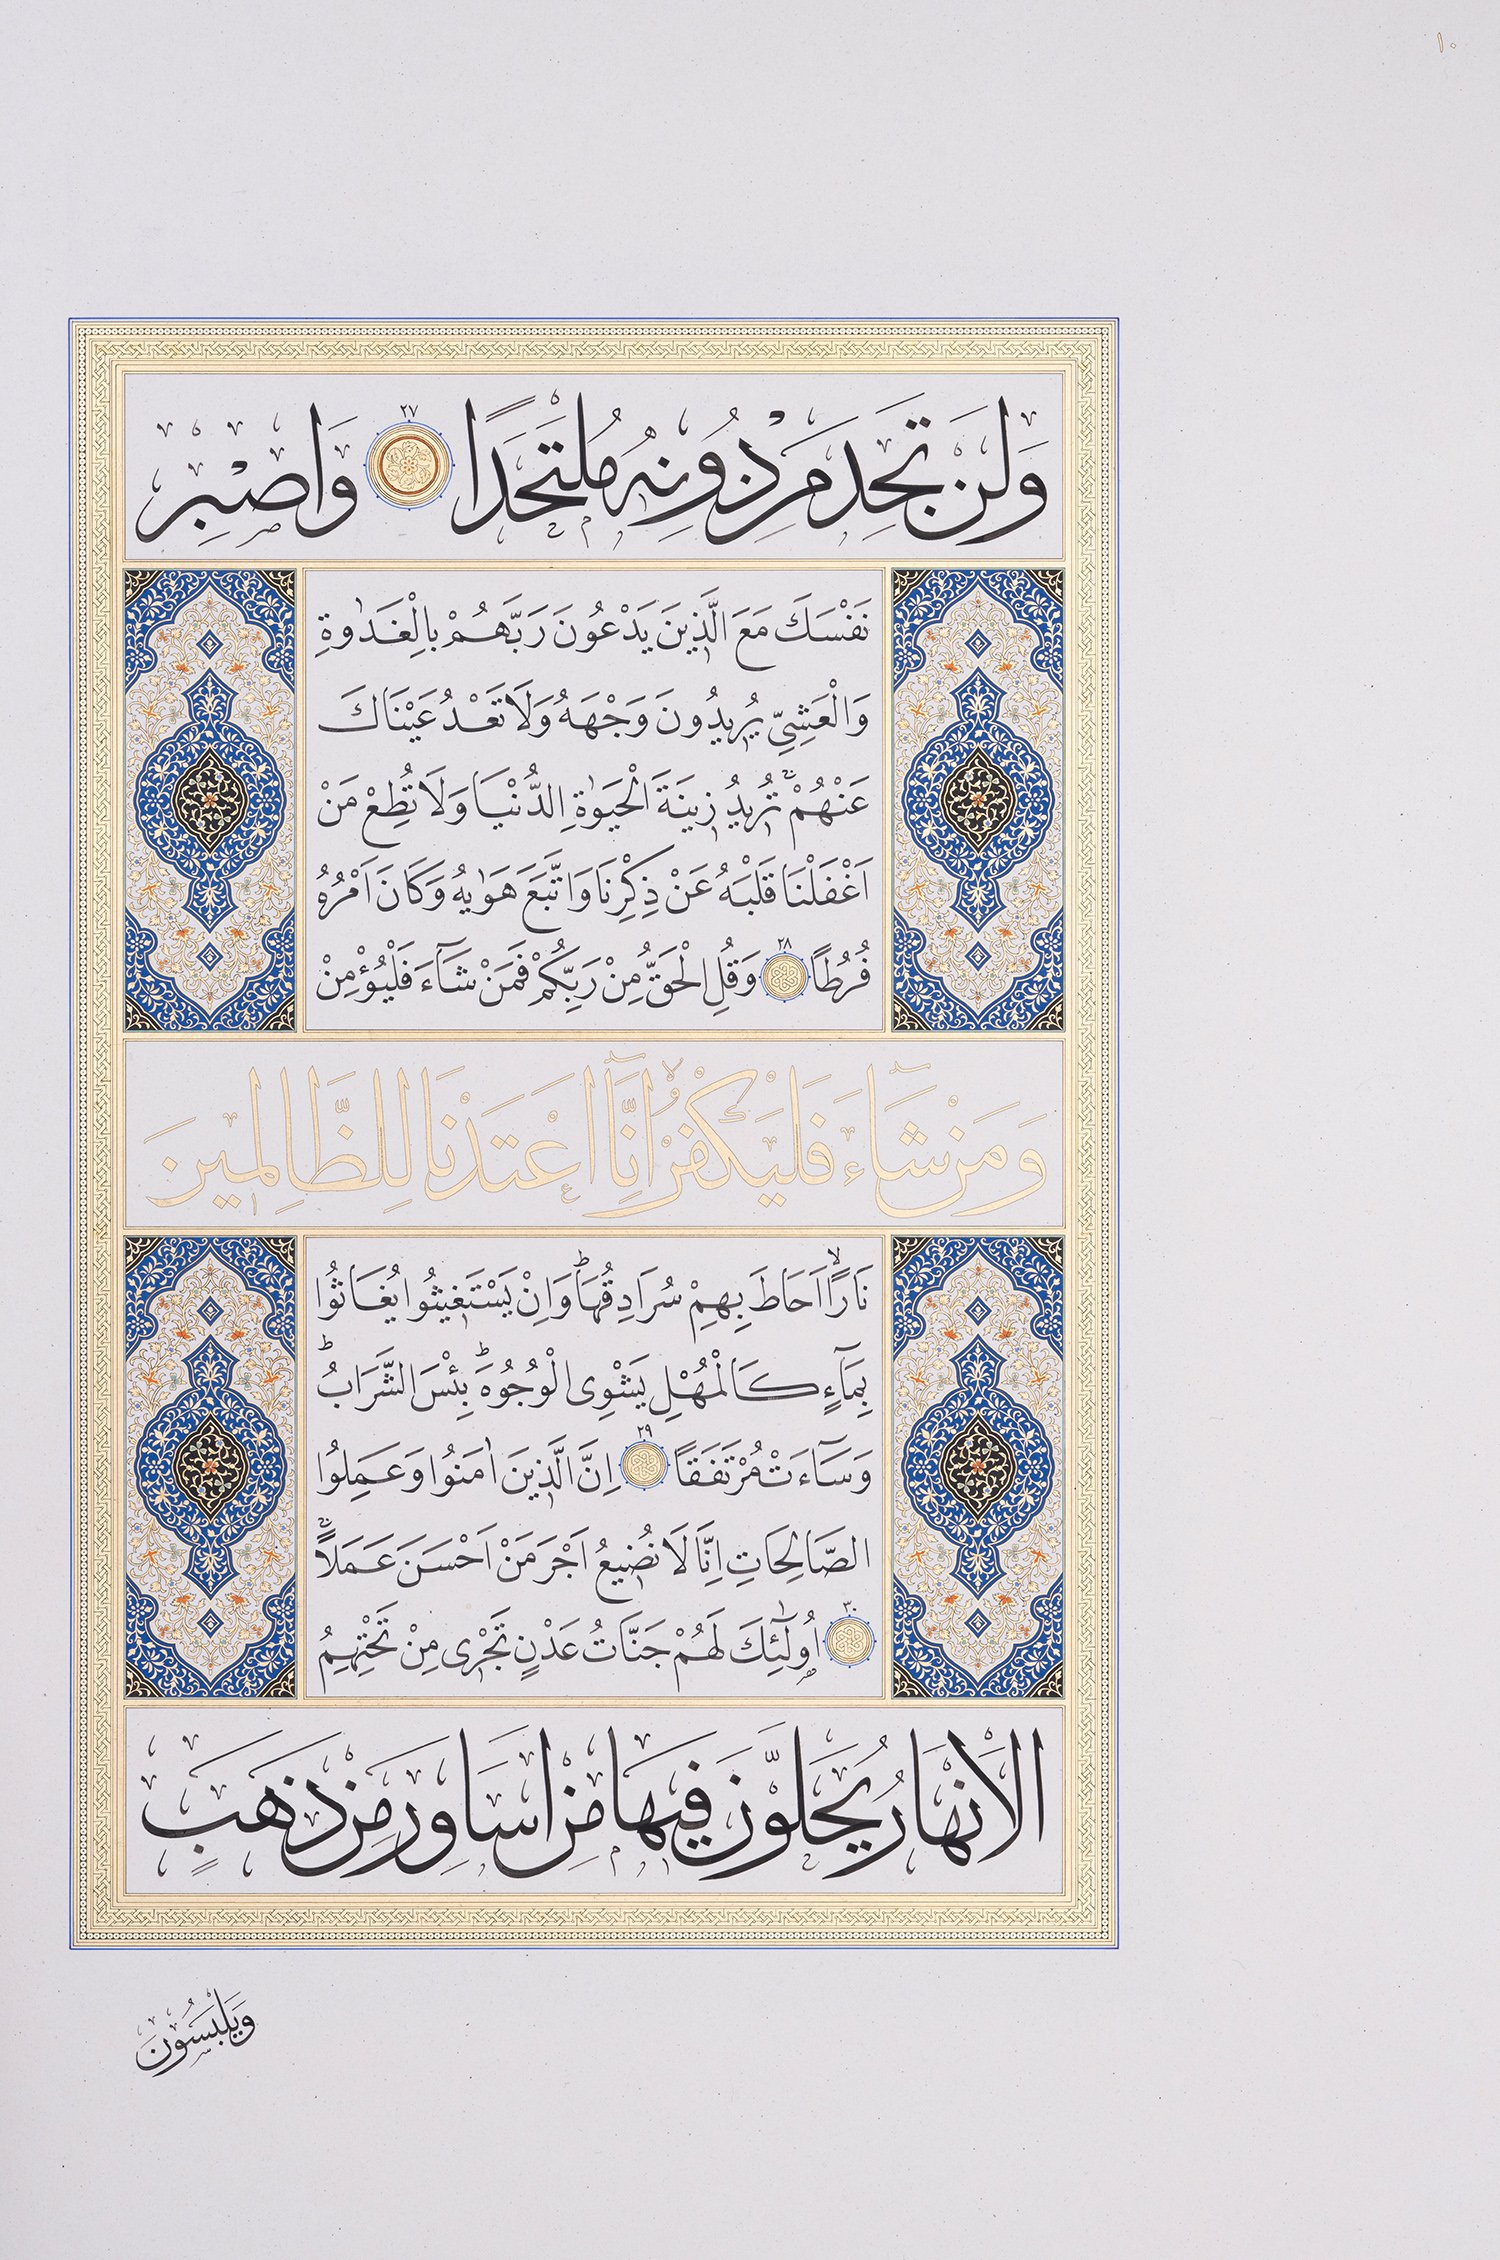 ١٠
وَلَنْ تَجِدَ مِنْ دُونِهٖ مُلْتَحَدًا ٢٧ وَاصْبِرْ
نَفْسَكَ مَعَ الَّذٖينَ يَدْعُونَ رَبَّهُمْ بِالْغَدٰوةِ
وَالْعَشِيِّ يُرٖيدُونَ وَجْهَهُ وَلَا تَعْدُ عَيْنَاكَ
عَنْهُمْۚ تُرٖيدُ زٖينَةَ الْحَيٰوةِ الدُّنْيَا وَلَا تُطِعْ مَنْ
اَغْفَلْنَا قَلْبَهُ عَنْ ذِكْرِنَا وَاتَّبَعَ هَوٰيهُ وَكَانَ اَمْرُهُ
فُرُطًا ٢٨ وَقُلِ الْحَقُّ مِنْ رَبِّكُمْ فَمَنْ شَٓاءَ فَلْيُؤْمِنْ
وَمَنْ شَٓاءَ فَلْيَكْفُرْۙ اِنَّٓا اَعْتَدْنَا لِلظَّالِمٖينَ
نَارًاۙ اَحَاطَ بِهِمْ سُرَادِقُهَاؕ وَاِنْ يَسْتَغٖيثُوا يُغَاثُوا
بِمَٓاءٍ كَالْمُهْلِ يَشْوِى الْوُجُوهَؕ بِئْسَ الشَّرَابُؕ
وَسَٓاءَتْ مُرْتَفَقًا ٢٩ اِنَّ الَّذٖينَ اٰمَنُوا وَعَمِلُوا
الصَّالِحَاتِ اِنَّا لَا نُضٖيعُ اَجْرَ مَنْ اَحْسَنَ عَمَلًاۚ
٣٠ اُولٰٓئِكَ لَهُمْ جَنَّاتُ عَدْنٍ تَجْرٖى مِنْ تَحْتِهِمُ
الْاَنْهَارُ يُحَلَّوْنَ فٖيهَا مِنْ اَسَاوِرَ مِنْ ذَهَبٍ
وَيَلْبَسُونَ